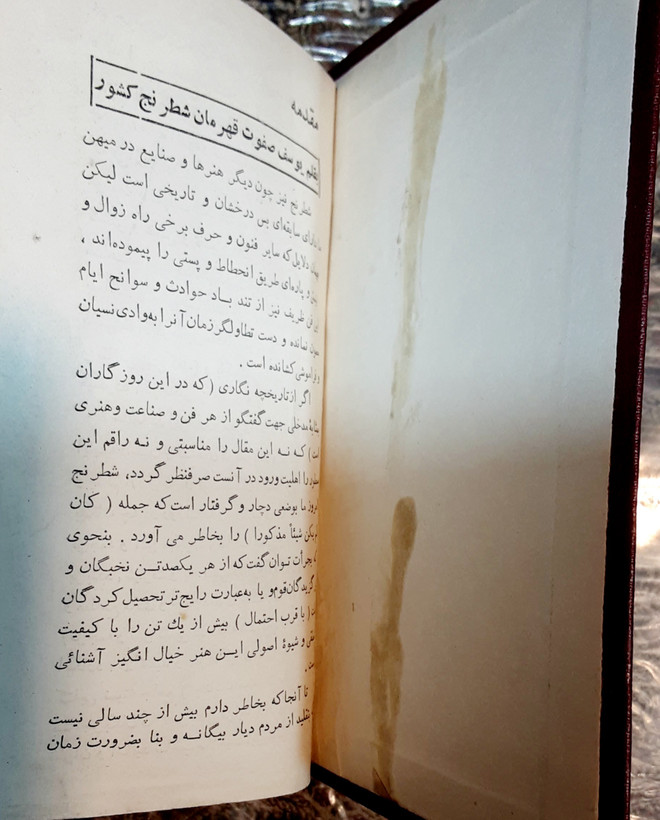 مقدمه
بقلم یوسف صفوت قهرمان شطرنج کشور
شطرنج نیز چون دیگر هنرها و صنایع در میهن
دارای سابقه‌ای بس درخشان و تاریخی است لیکن
دلایل که سایر فنون و حرف برخی راه زوال و
و پاره‌ای طریق انحطاط و پستی را پیموده‌اند ،
این فن ظریف نیز از تند بـاد حوادث و سوانح ایام
مصون نمانده و دست تطاولگر زمان آنرا به‌وادی نسیان
و فراموشی کشانده است .
اگر از تاریخچه نگاری ( که در این روزگاران
مدخلی جهت گفتگو از هر فن و صناعت و هنری
است ) کـه نـه این مقال را مناسبتی و نـه راقم این
را اهلیت ورود در آنست صرفنظر گردد، شطرنج
امروز ما بوضعی دچار و گرفتار است که جمله ( کان
لم یکن شیئاً مذکورا ) را بخاطر می آورد . بنحوی
که بجرأت تـوان گفت که از هر یکصدتـن نخبگان و
گزیدگان قوم و یا به‌عبارت رایج‌تر تحصیل کردگان
( با قرب احتمال ) بیش از یك تن را با کیفیت
و شیوهٔ اصولی ایـن هنر خیال انگیز آشنائی
نیست .
تا آنجا که بخاطر دارم بیش از چند سالی نیست
تقلید از مردم دیار بیگانـه و بنا بضرورت زمان